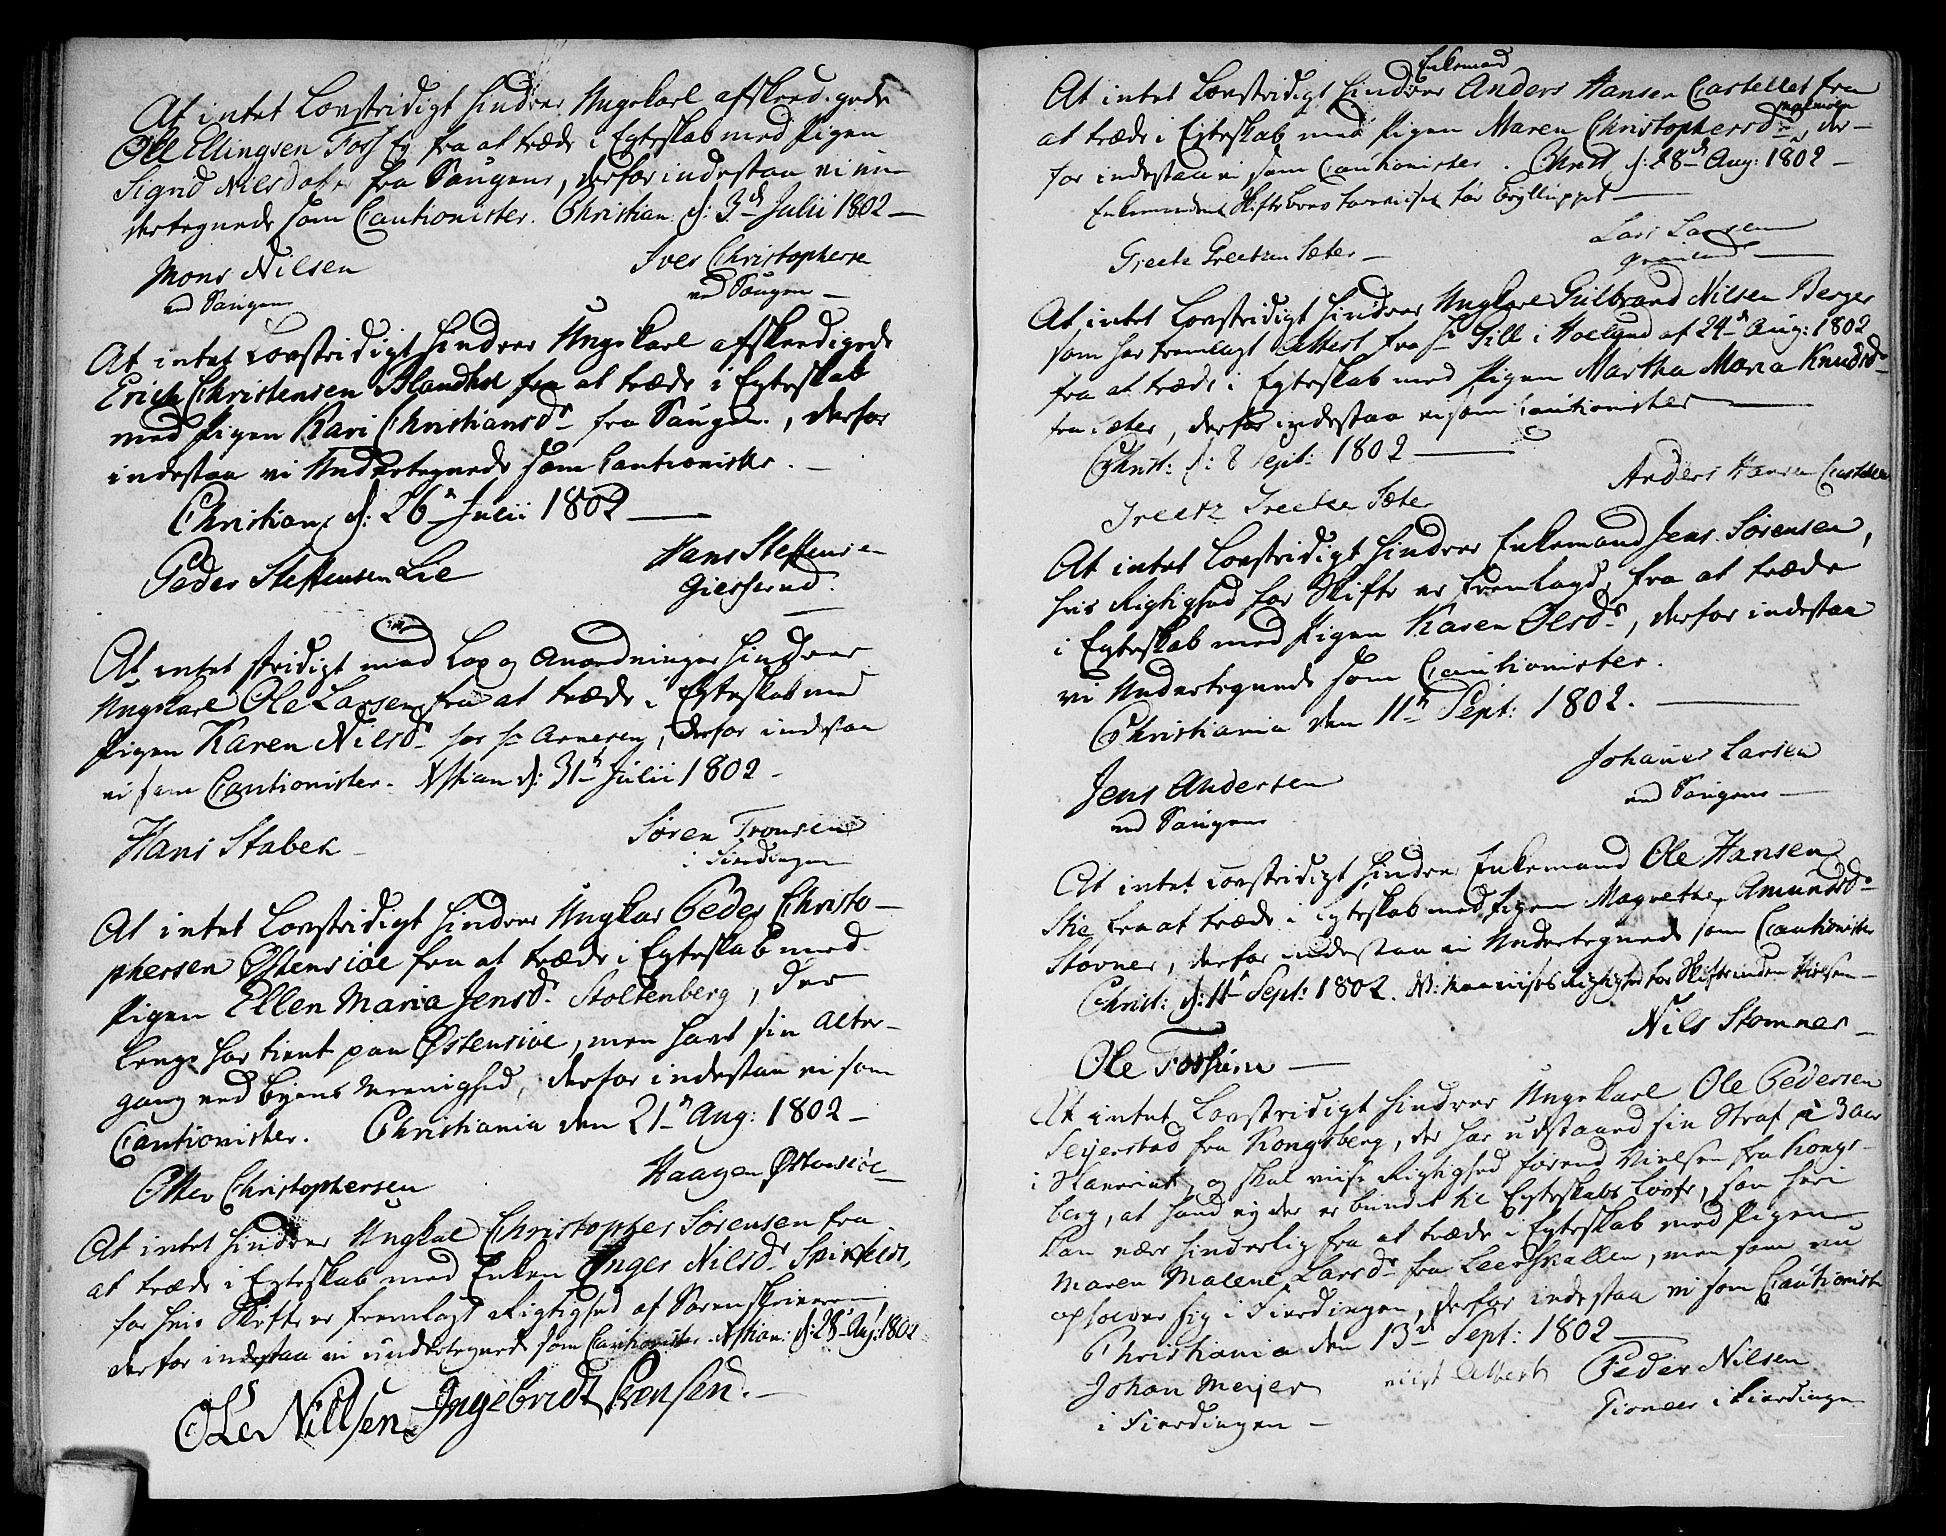 At intet Lovstridigt hindrer Ungekarl afskeed. gede
Ole Ellingsen Foss Ey fra at træde i Egteskab med Pigen
Sigrid Nilsdater fra Saugene, derfor indestaa vi un-
dertegnede som Cautionister. Christian: d: 3d Julii 1802 —
Mons Nilsen
Iver Christophersen
ved Saugene
ved Saugene —
At intet Lovstridigt hindrer Ungekarl afskeedigede
Erich Christensen fra at træde i Egteskab
med Pigen Kari Christiansdr fra Saugen., derfor
indestaa vi Undertegnede som Cautionister. —
Christian: d: 26n Julii 1802 —
Peder Steffensen Lie
Hans Steffensen
Giesserud.
At intet stridigt mod Lov og Anordninger hindrer
Ungekarl Ole Larsen fra at træde i Egteskab med
Pigen Karen Nilsdr hos hr Arnesen, derfor indestaa
vi som Cautionister. Xstian d: 31te Julii 1802 —
Hans Stabek
Søren Tronsen
i Fierdingen
At intet Lovstridigt hindrer Ungkar Peder Christo-
phersen Østensiøe fra at træde i Egteskab med
Pigen Ellen Maria Jensdr Stoltenberg, der
lenge har tient paa Østensiøe, men havt sin Alter-
gang ved Byens Meenighed, derfor indestaa vi som
Cautionister. Christiania den 21n Aug: 1802 —
Otter Christophersen
Haagen Østensiøe —
At intet hindrer Ungkal Christopher Sørensen fra
at træde i Egteskab med Enken Inger Nilsdr
for hvis Skifte er fremlagt Rigtighed af Sorenskriveren
derfor indestaa vi undertegnede som Cautionister. Xstian: d: 28 Aug: 1802
OLe Nillsen Ingebridt Svensen. —
Enkemand
At intet Lovstridigt hindrer Anders Hansen Castellet fra
at træde i Egteskab med Pigen Maren Christophersdr der-
for indestaa vi som Cautionister. Christ d: 28de Aug: 1802 —
Enkemandens Skiftebrev forevises før Brylluppet —
Greete Sæter —
Lars Larsen
At intet Lovstridigt hindrer Ungkarl Gulbrand Nilsen Berger
som har fremlagt Attest fra hr Gill i Høeland af 24de Aug: 1802
fra at træde i Egteskab med Pigen Martha Maria Knudsdr
fra Sæter, derfor indestaa vi som Cautionister
Christ: d: 8 Sept: 1802 —
Anders Hansen Castellet
Sæter
At intet Lovstridigt hindrer Enkemand Jens Sørensen,
hvis Rigtighed for Skifte er fremlagd, fra at træde
i Egteskab med Pigen Karen Olsdr, derfor indestaa
vi Undertegnede som Cautionister.
Christiania den 11te Sept: 1802. —
Jens Andersen
Johannes Larsen
ved Saugene
ved Saugene —
At intet Lovstridigt hindrer Enkemand Ole Hansen
Skie fra at træde i Egteskab med Pigen Magrethe Amundsdr
Stovner, derfor indestaa vi Undertegnede som Cautionister
Christ: d: 11te Sept: 1802. NB: maa vises Rigtighed for Skifte inden Vielsen —
Nils Stomner —
Ole Fossum —
At intet Lovstridigt hindrer Ungekarl Ole Pedersen
Seijerstad fra Kongsberg, der har udstaaed sin Straf på 3 Aar
i Slaveriet, og skal viise Rigtighed forend Vielsen fra Kongs-
berg, at hand ej der er bundet til Egteskabs Løfte, som heri
kan være hinderlig fra at træde i Egteskab med Pigen
Maren Malene Larsdr fra Leerskallen, men som nu
opholder sig i Fierdingen, derfor indestaa vi som Cautionister
Christiania den 13de Sept: 1802 —
Johan Meijer
viist Attest
Peder Nilsen
i Fierdingen —
Pioneer i Fierdingen